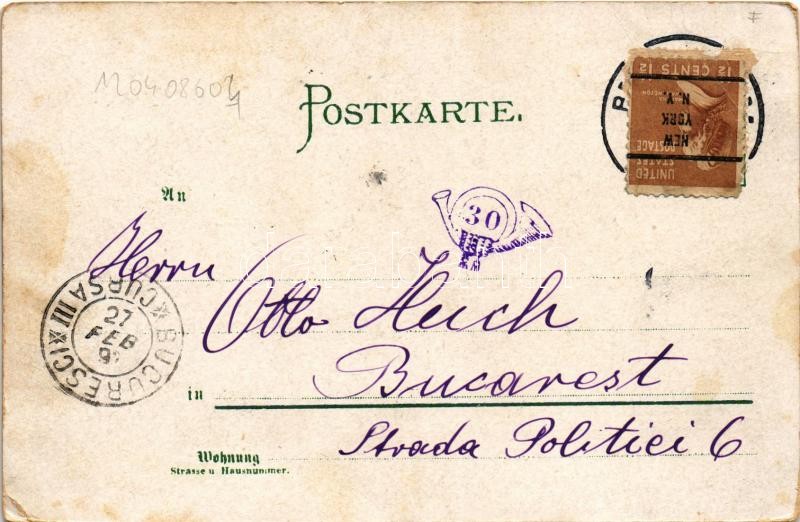 120408604
POSTKARTE.
1½ CENTS 1½
NEW YORK
N. Y.
UNITED STATES POSTAGE
An
30
Herrn
Otto Huch
in Bucarest
Strada Politiei 6
Wohnung
Strasse u Hausnummer.
BUCURESCI CURSA III
27
FEB